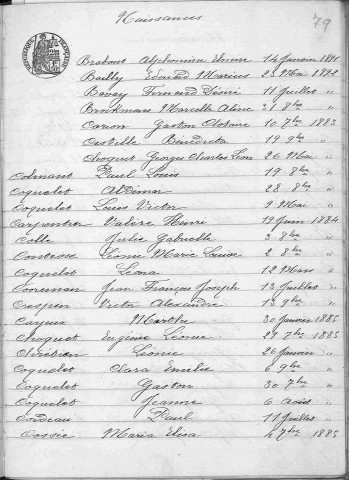 Naissances
79
Brabant Alphonsine 14 Janvier 1891
Bailly Edmond Marius 23 Mai 1892
Bavay Fernand Désiré 11 Juillet "
Brockmans Marcelle Aline 31 8bre "
Caron Gaston Clotaire 10 7bre 1883
Castille Bénédicta 19 9bre "
Choquet Georges Charles Léon 26 Mai "
Colmant Paul Louis 19 8bre "
Coquelet Aldimar 28 8bre "
Coquelet Louis Victor 9 Mai "
Carpentier Valère Henri 19 Juin 1884
Colle Julie Gabrielle 3 8bre "
Contesse Léonie Marie Louise 2 8bre "
Coquelet Léona 12 Mars "
Jean François Joseph 13 Juillet "
Crespin Victor Alexandre 13 9bre "
Marthe 30 Janvier 1885
Choquet Eugénie Léonie 29 7bre 1885
Léonie 26 Janvier "
Coquelet Clara Emilie 6 9bre "
Coquelet Gaston 30 7bre "
Coquelet Jeanne 6 Août "
Cordeau Paul 11 Juillet "
Cossée Maria Elisa 4 7bre 1885